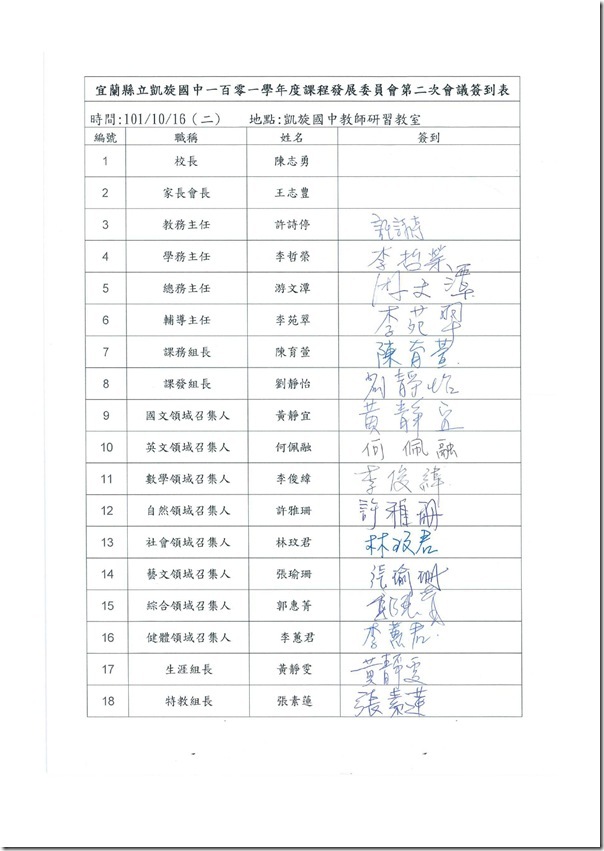 宜蘭縣立凱旋國中一百零一學年度課程發展委員會第二次會議簽到表
時間:101/10/16（二） 地點:凱旋國中教師研習教室
編號 職稱 姓名 簽到
1 校長 陳志勇
2 家長會長 王志豊
3 教務主任 許詩停 許詩停
4 學務主任 李哲榮 李哲榮
5 總務主任 游文潭 游文潭
6 輔導主任 李苑翠 李苑翠
7 課務組長 陳育萱 陳育萱
8 課發組長 劉靜怡 劉靜怡
9 國文領域召集人 黃靜宜 黃靜宜
10 英文領域召集人 何佩融 何佩融
11 數學領域召集人 李俊緯 李俊緯
12 自然領域召集人 許雅珊 許雅珊
13 社會領域召集人 林玟君 林玟君
14 藝文領域召集人 張瑜珊 張瑜珊
15 綜合領域召集人 郭惠菁 郭惠菁
16 健體領域召集人 李蕙君 李蕙君
17 生涯組長 黃靜雯 黃靜雯
18 特教組長 張素蓮 張素蓮